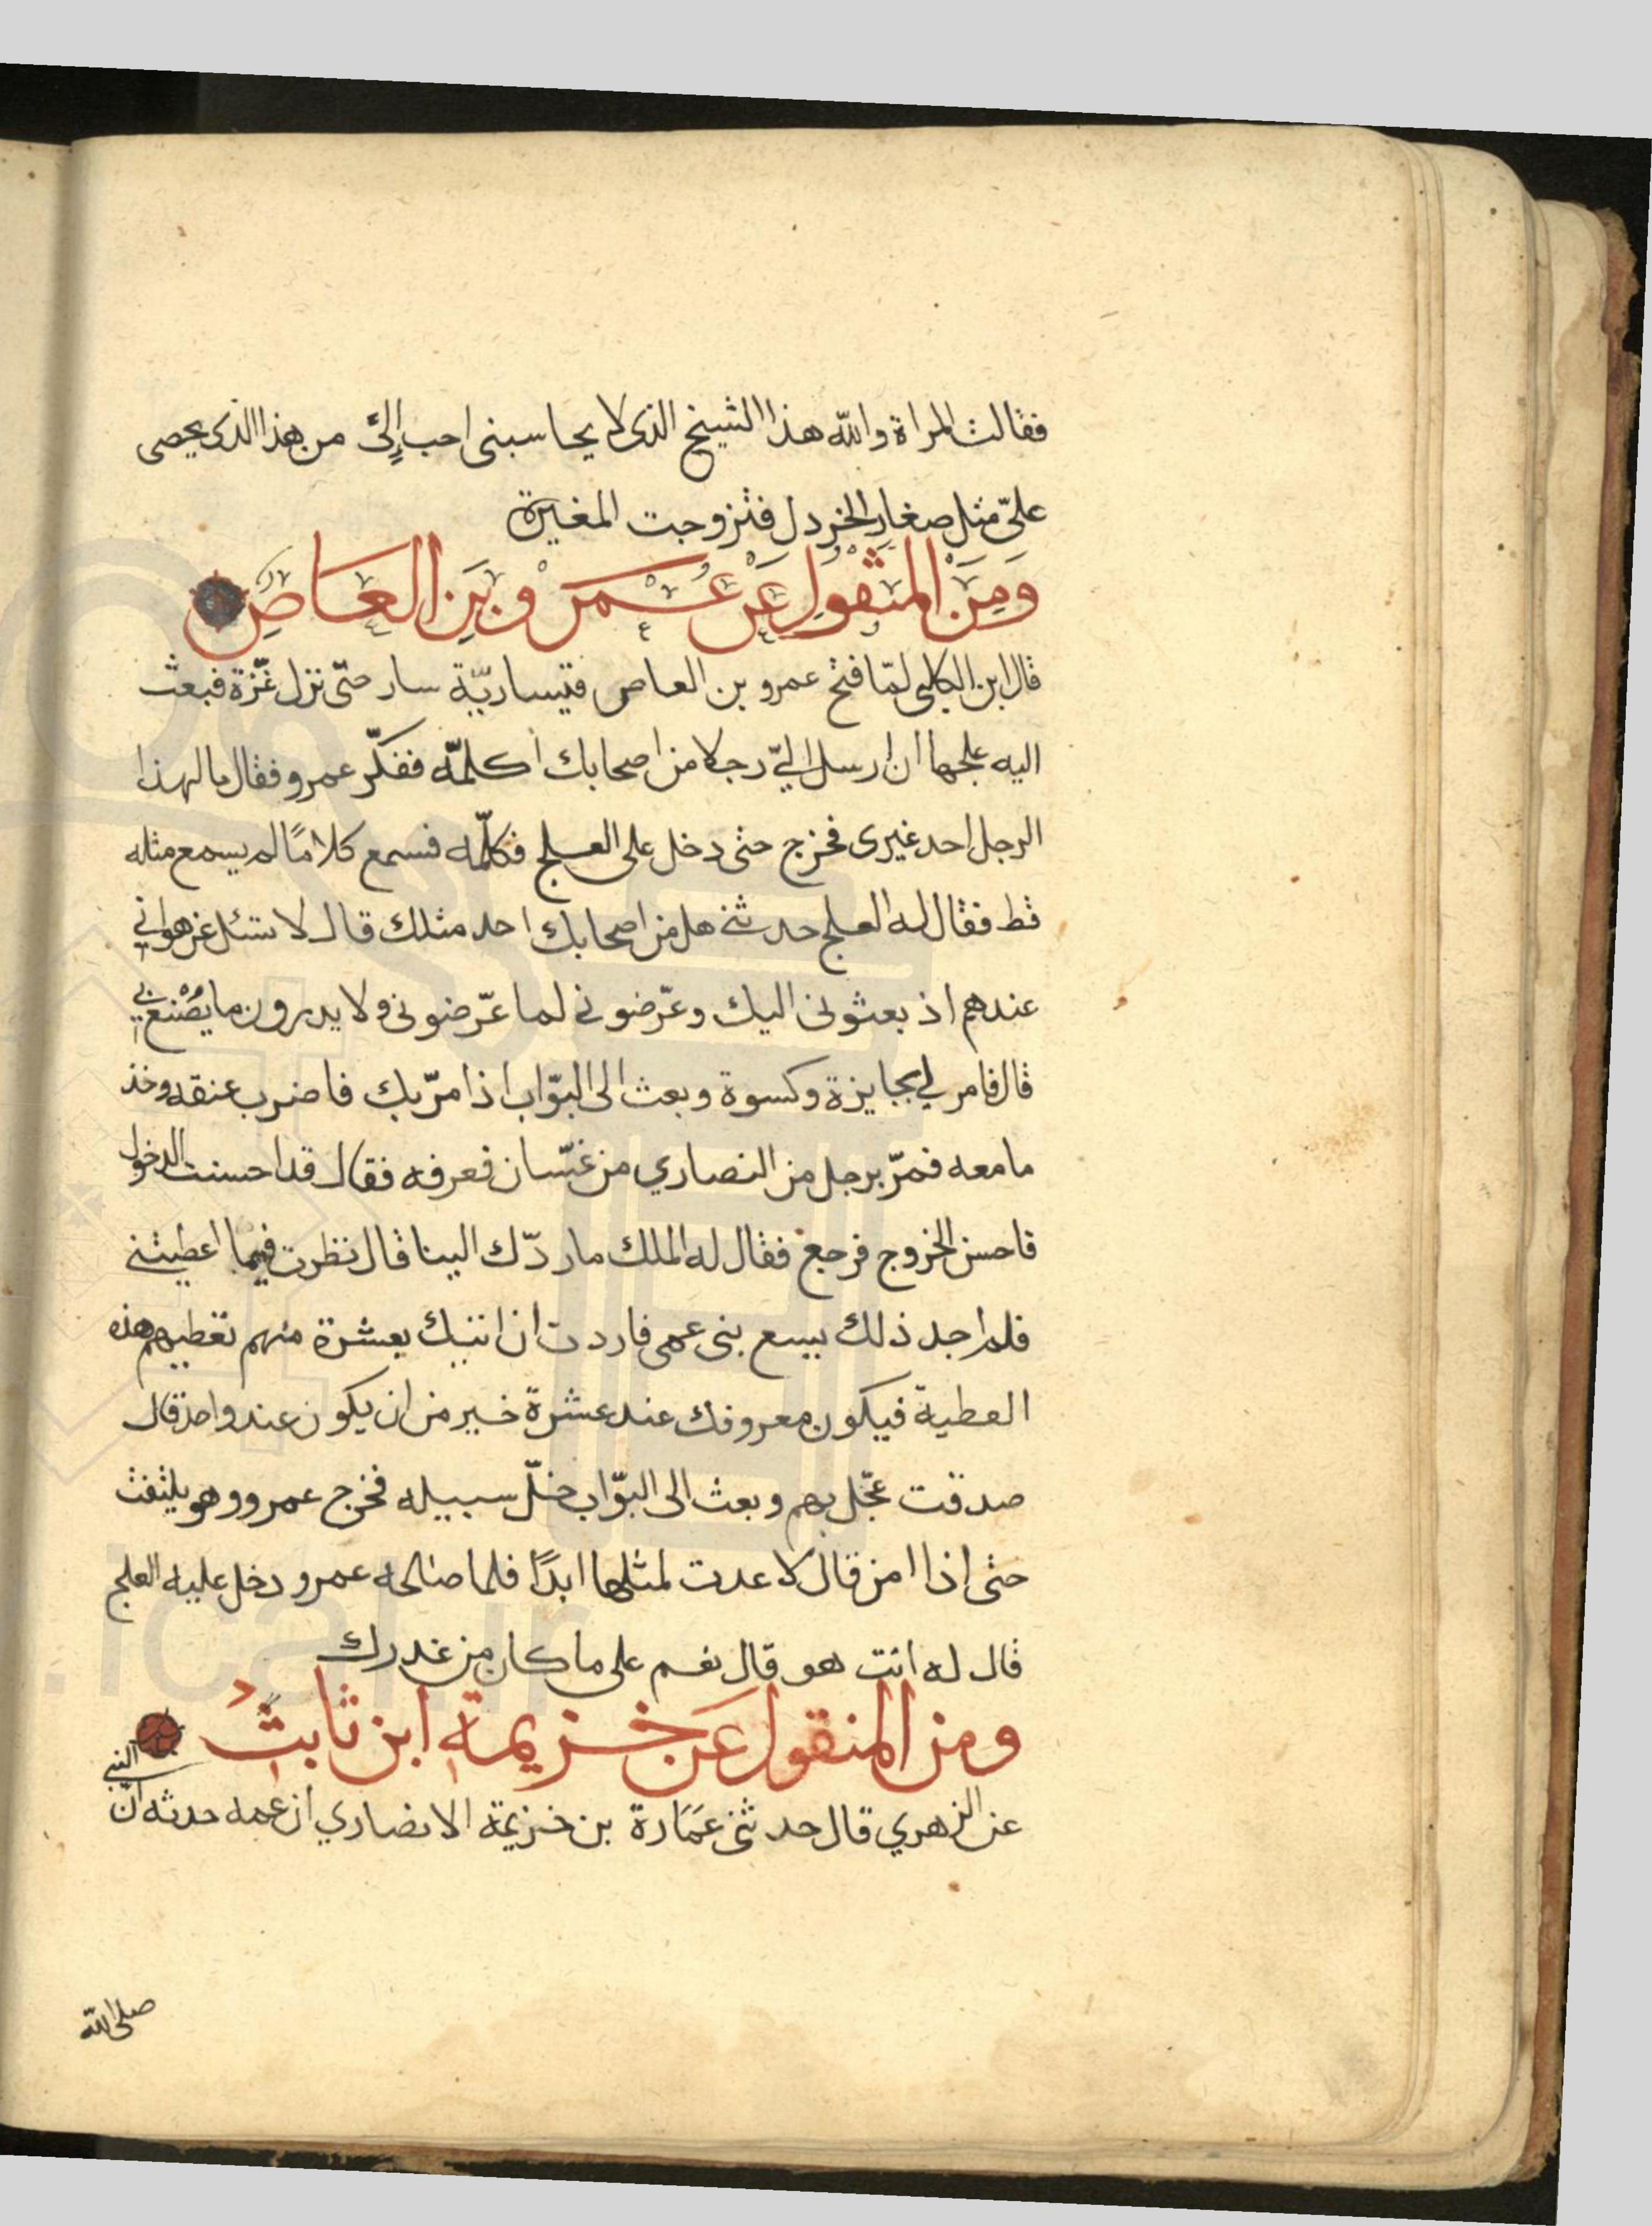 فقالت المراة والله هذا الشيخ الذى لا يحاسبنى احب إلىّ من هذا الذى يحصى
علىّ مثل صغار الخردل فتزوجت المغيرة
وَمِنَ المنقولِ عَنْ عُمَرَ وبَينِ العَاصِ
قال ابن الكلبى لمّا فتح عمرو بن العاص قيساريّة سار حتّى نزل غَزّة فبعث
اليه علجها ان ارسل الىّ رجلا من اصحابك اكلمّه ففكّر عمرو فقال ما لهذا
الرجل احد غيرى فخرج حتى دخل على العلج فكلّمه فسمع كلامًا لم يسمع مثله
قط فقال له العلج حدثنى هل من اصحابك احد مثلك قال لا تسئل عن هوانى
عندهم اذ بعثونى اليك وعرّضونى لما عرّضونى ولا يدرون ما يصْنع بى
قال فامر لى بجايزة وكسوة وبعث الى البوّاب اذا مرّ بك فاضرب عنقه وخذ
ما معه فمرّ برجل من النصارى من غسّان فعرفه فقال قد احسنت الدخول
فاحسن الخروج فرجع فقال له الملك ما ردّك الينا قال نظرت فيما اعطيتنى
فلم اجد ذلك يسع بنى عمى فاردت ان اتيك بعشرة منهم تعطيهم هذه
العطية فيكون معروفك عند عشرة خير من ان يكون عند واحد قال
صدقت عجّل بهم وبعث الى البوّاب خلّ سبيله فخرج عمرو وهو يلتفت
حتى إذا امن قال لا عدت لمثلها ابدًا فلما صالحه عمرو دخل عليه العلج
قال له انت هو قال نعم على ما كان من غدرك
ومن المنقول عَن خزيمة ابن ثابت
عن الزهري قال حدثنى عَمَارة بن خزيمة الانصاري ان عمه حدثه انّ النبى
صلى الله